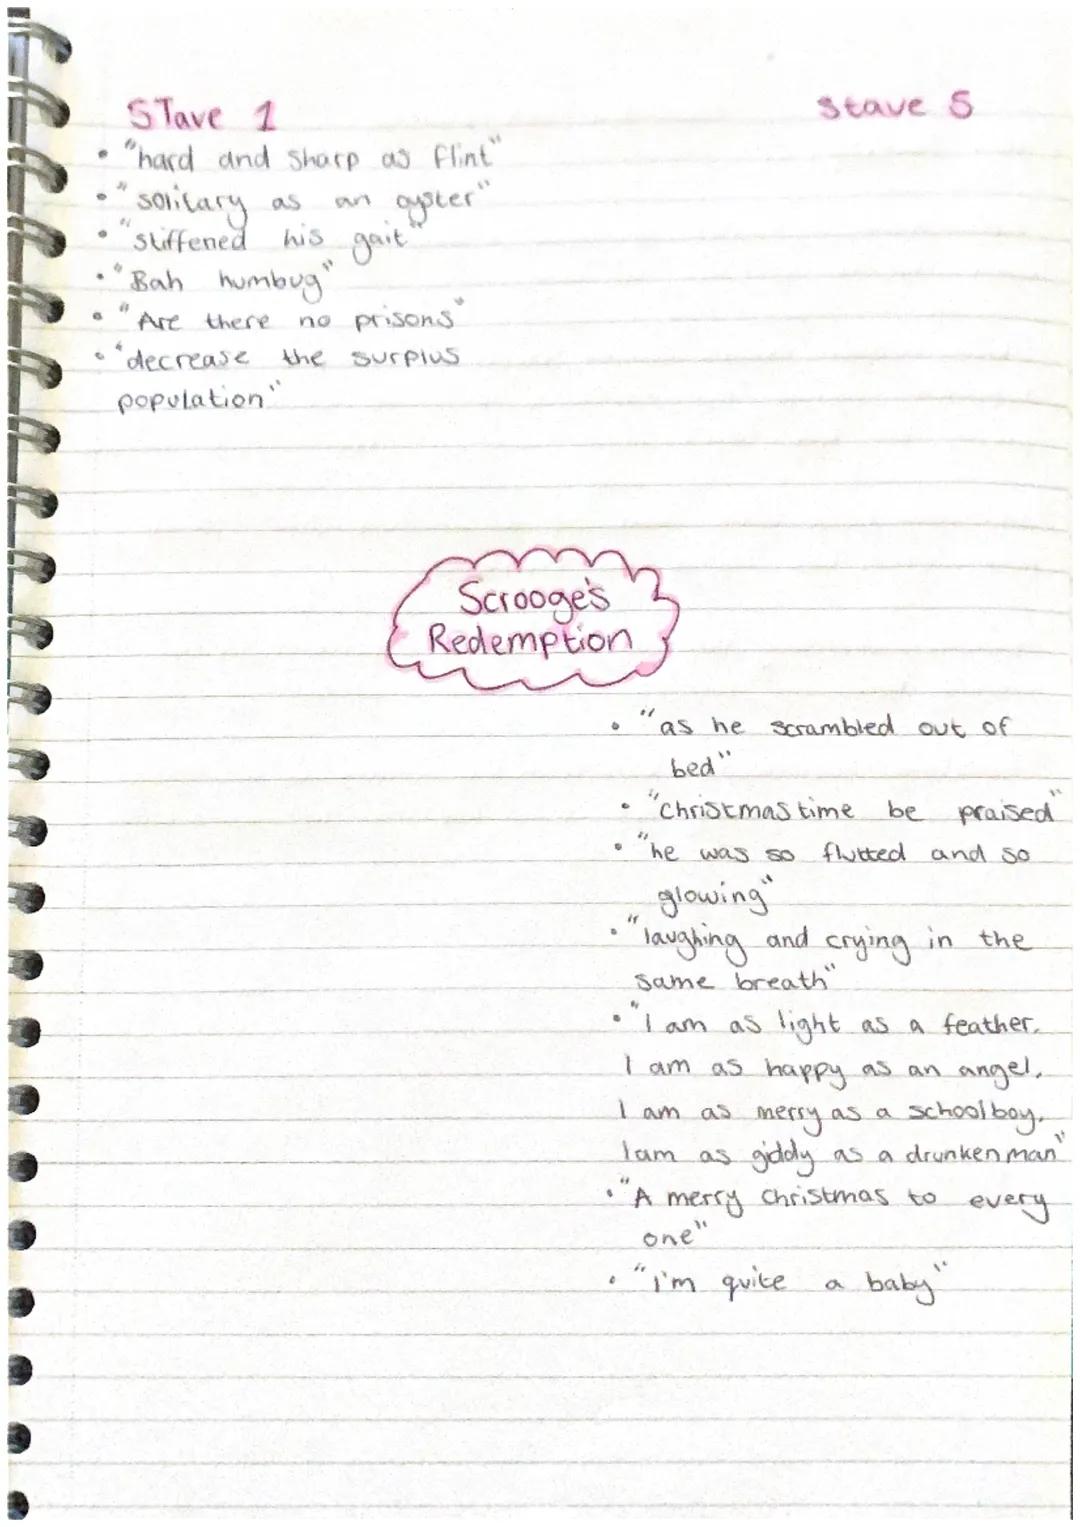 STave 1
• "hard and sharp as flint"
• "solitary as an oyster"
• "stiffened his gait"
• "Bah humbug"
• "Are there no prisons"
• "decrease the surplus
population"
Stave 5
Scrooge's
Redemption
• "as he scrambled out of
bed"
• "Christmas time be praised"
• "he was so flutted and so
glowing"
• "laughing and crying in the
same breath"
• "I am as light as a feather,
I am as happy as an angel,
I am as merry as a schoolboy,
I am as giddy as a drunken man"
• "A merry christmas to every
one"
• "I'm quite a baby"